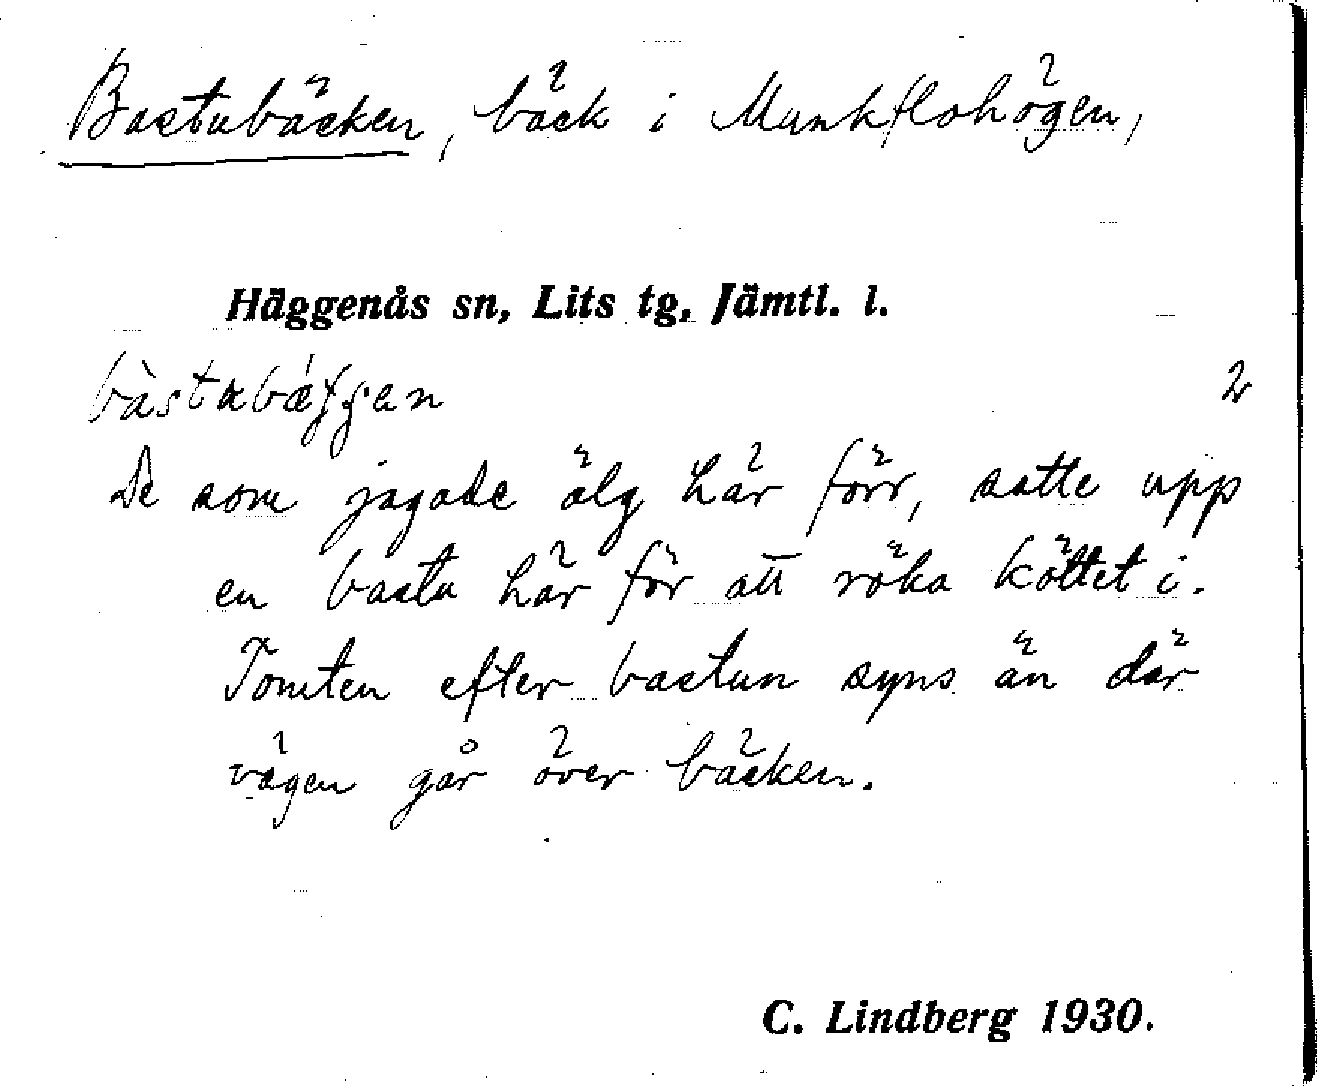 Bastubäcken, bäck i Munkflohögen,
Häggenås sn, Lits tg, Jämtl. l.
2
De som jagade älg här förr, satte upp
en bastu här för att röka köttet i.
Tomten efter bastun syns än där
vägen går över bäcken.
C. Lindberg 1930.